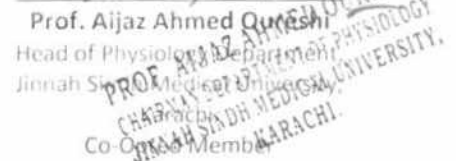 Prof. Aijaz Ahmed Qureshi
Head of Physiology Department
Jinnah Sindh Medical University
Karachi
Co-Opted Member
PROF. AIJAZ AHMED QURESHI
CHAIRMAN DEPARTMENT OF PHYSIOLOGY
JINNAH SINDH MEDICAL UNIVERSITY,
KARACHI.